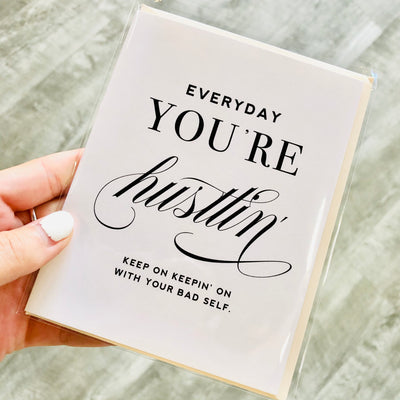 EVERYDAY
YOU'RE
hustlin'
KEEP ON KEEPIN' ON
WITH YOUR BAD SELF.